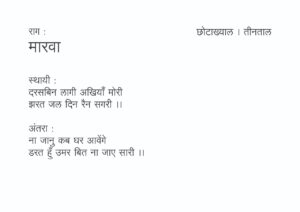 राग :
छोटाख्याल । तीनताल
मारवा
स्थायी :
दरसबिन लागी अखियाँ मोरी
झरत जल दिन रैन सगरी ।।
अंतरा :
ना जानु कब घर आवेंगे
डरत हुँ उमर बित ना जाए सारी ।।